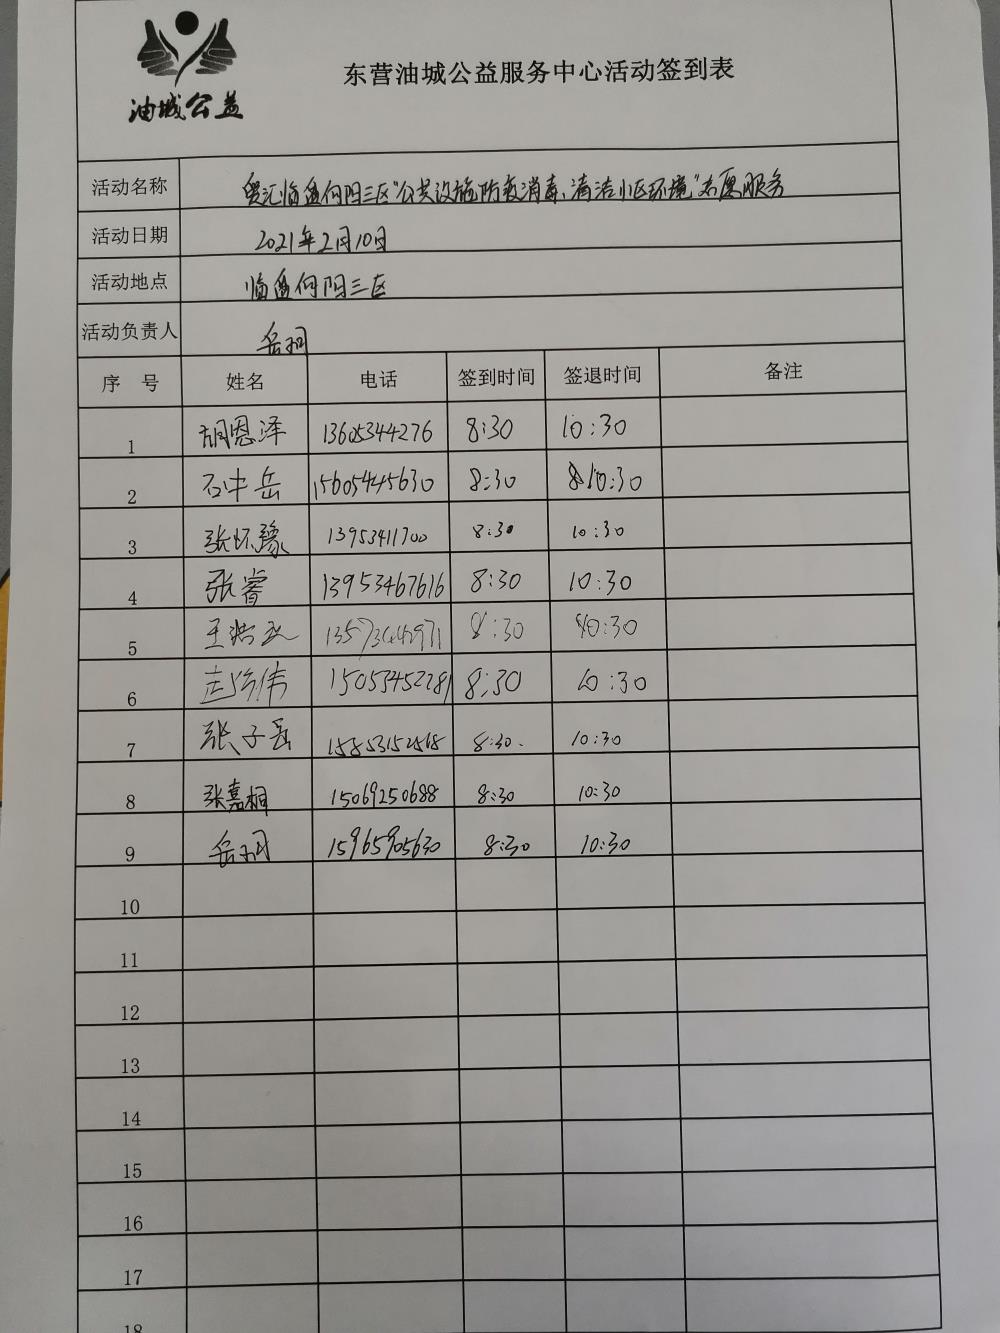 油城公益
东营油城公益服务中心活动签到表
活动名称 爱汇临盘向阳三区"公共设施防疫消毒、清洁小区环境"志愿服务
活动日期 2021年2月10日
活动地点 临盘向阳三区
活动负责人 岳
序 号 姓名 电话 签到时间 签退时间 备注
1 胡恩泽 13605344276 8:30 10:30
2 石中岳 15605445630 8:30 10:30
3 张怀豫 13953411700 8:30 10:30
4 张睿 13953467616 8:30 10:30
5 王浩 8:30 10:30
6 伟 15053452281 8:30 10:30
7 张子岳 8:30 10:30
8 张嘉桐 15069250688 8:30 10:30
9 岳 15965905630 8:30 10:30
10
11
12
13
14
15
16
17
18